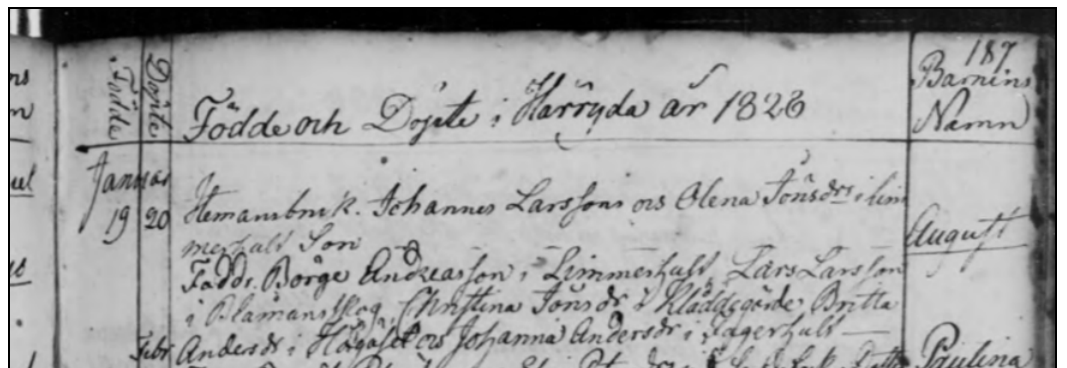 187
Födde Döpte Födde och Döpte i Härryda år 1828 Barnens Namn
Januari
19 20 Hemansbruk. Johannes Larssons os Olena Jönsdrs i Lim
merhult Son August
Fadd. Börge Andreasson i Limmerhult, Lars Larsson
i Blåmansskog, Christina Jönsdr i Klåddegärde Britta
Febr Andersdr i os Johanna Andersdr i Jägerhult —
Paulina